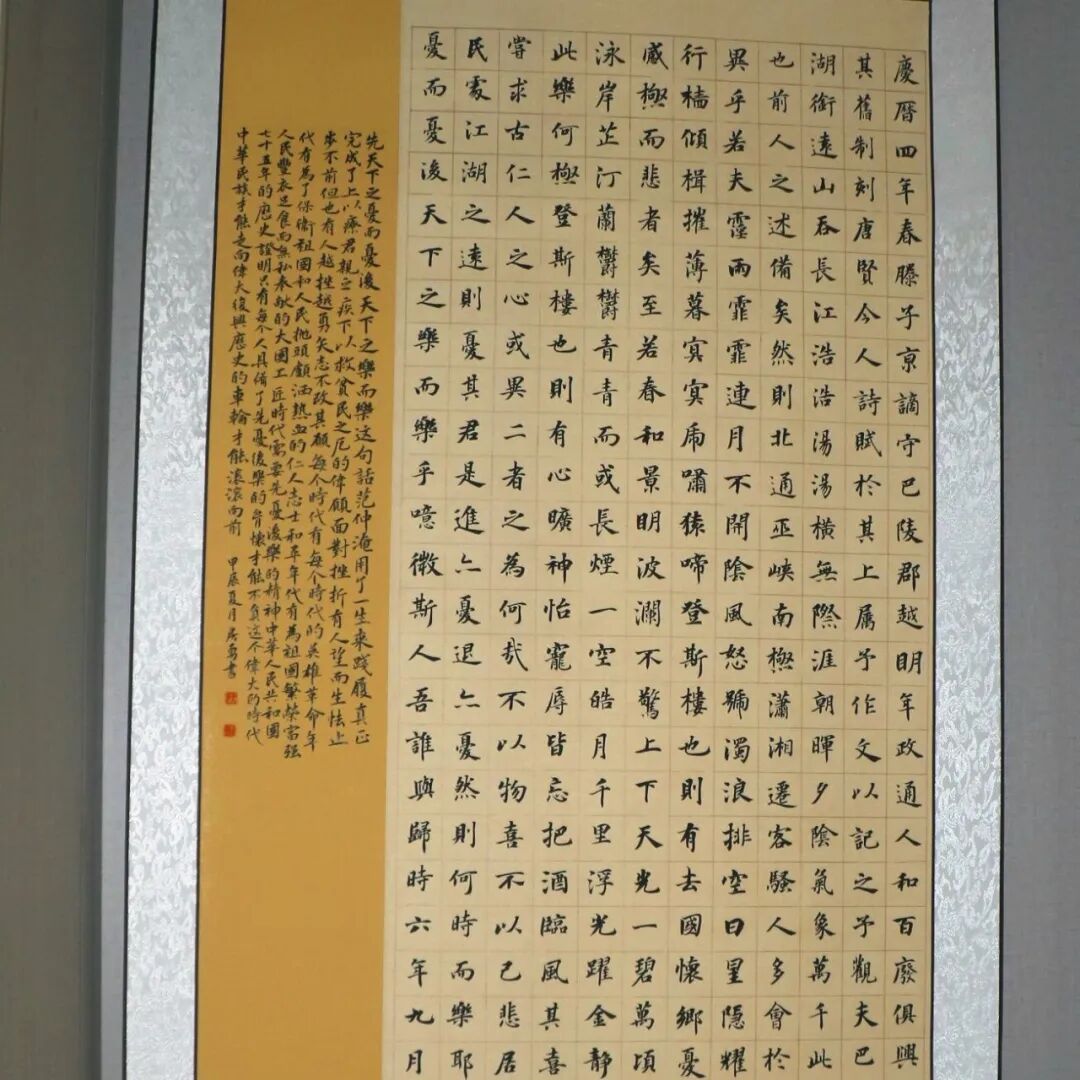 慶曆四年春滕子京謫守巴陵郡越明年政通人和百廢俱興
其舊制刻唐賢今人詩賦於其上属予作文以記之予觀夫巴
湖銜遠山吞長江浩浩湯湯橫無際涯朝暉夕陰氣象萬千此
也前人之述備矣然則北通巫峽南極瀟湘遷客騷人多會於
異乎若夫霪雨霏霏連月不開陰風怒號濁浪排空日星隱耀
行檣傾楫摧薄暮冥冥虎嘯猿啼登斯樓也則有去國懷鄉憂
感極而悲者矣至若春和景明波瀾不驚上下天光一碧萬頃
泳岸芷汀蘭鬱鬱青青而或長煙一空皓月千里浮光躍金靜
此樂何極登斯樓也則有心曠神怡寵辱皆忘把酒臨風其喜
嘗求古仁人之心或異二者之為何哉不以物喜不以己悲居
民處江湖之遠則憂其君是進亦憂退亦憂然則何時而樂耶
憂而憂後天下之樂而樂乎噫微斯人吾誰與歸時六年九月
先天下之憂而憂後天下之樂而樂這句話范仲淹用了一生來踐履真正
完成了上以療君親之疾下以救貧民之厄的偉願面對挫折有人望而生怯止
步不前但也有人越挫越勇矢志不改其願每个時代有每个時代的英雄革命年
代有為了保衛祖國和人民拋頭顱洒熱血的仁人志士和平年代有為祖國繁榮富强
人民豐衣足食而無私奉献的大國工匠時代需要先憂後樂的精神中華人民共和國
七十五年的歷史證明只有每个人具備了先憂後樂的胷懷才能不負這个偉大的時代
中華民族才能走向偉大復興歷史的車輪才能滾滾向前 甲辰夏月 書